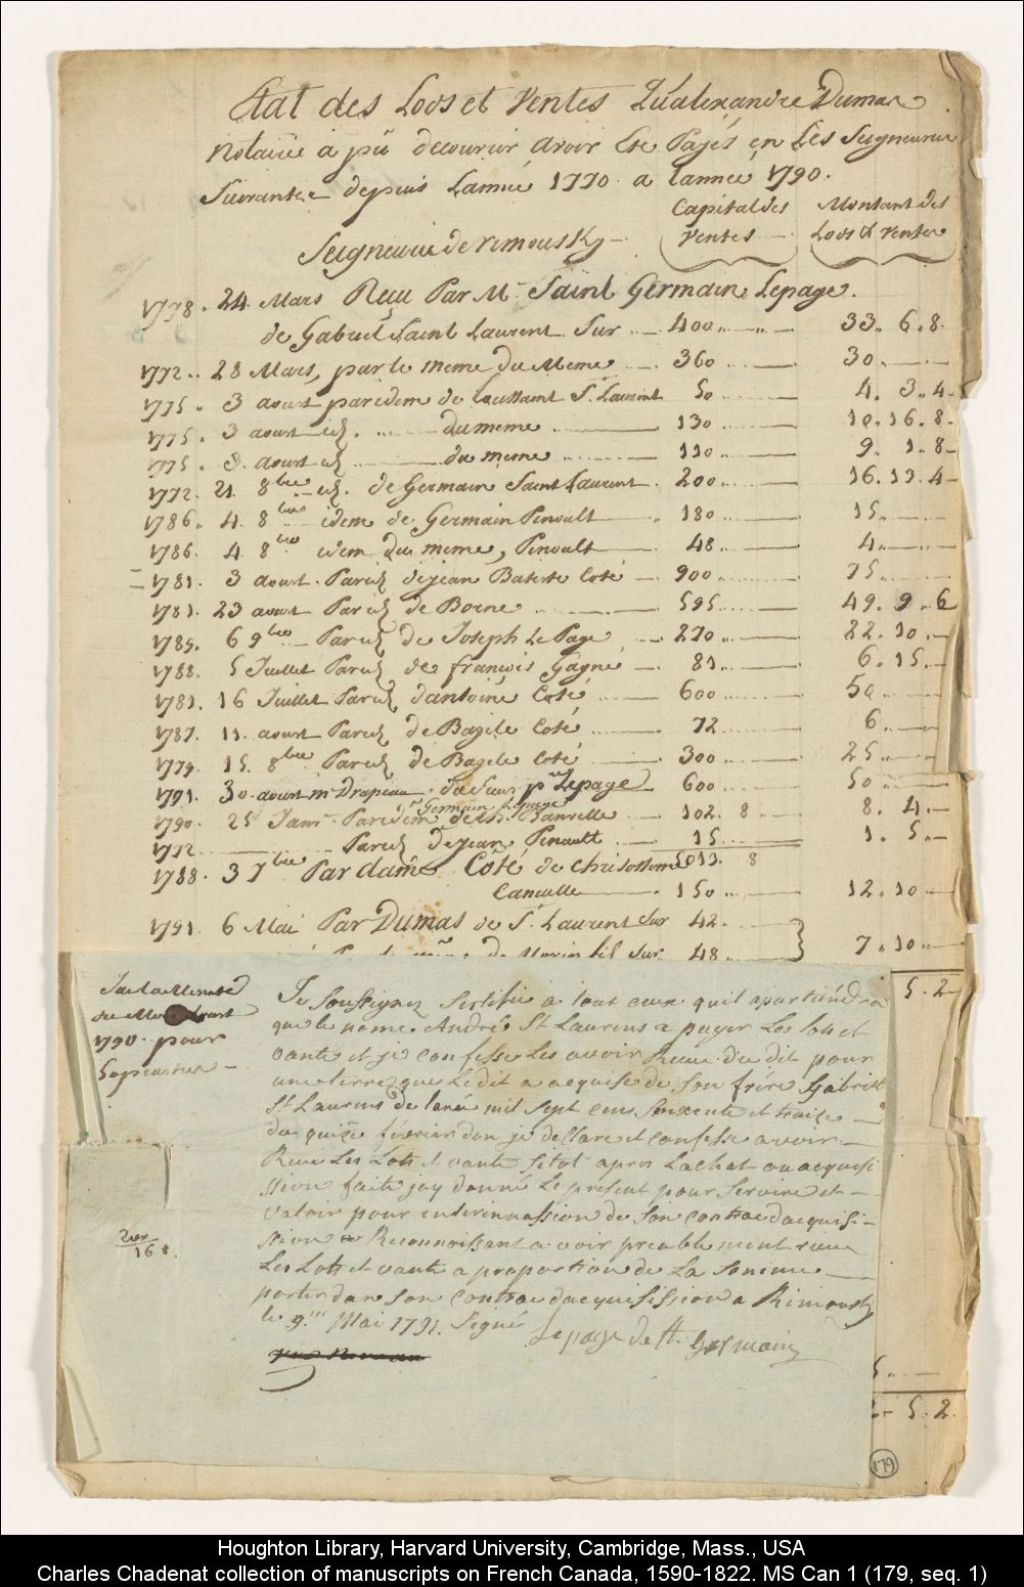 Etat des Lods et Ventes Qualexandre Dumas
Notaire a pû decouvrir avoir Eté Payés en Les Seigneuries
Suivantes depuis Lannée 1770 a Lannée 1790.
Capital des Ventes
Montant des Lods & ventes
Seigneurie de rimousky
1778. 24. Mars Reçu Par Mr Saint Germain Lepage.
de Gabriel Saint Laurent Sur 400 33. 6. 8.
1772. 28 Mars, par le meme du Meme 360 30
1775. 3 aoust par idem de toussaint St. Laurent 50 4. 3. 4
1775. 3 aoust id. du meme 130 10. 16. 8.
1775. 3. aoust id du meme 110 9. 3. 8
1772. 21. 8bre id. de Germain Saint Laurent 200 16. 13. 4
1786. 4. 8bre idem de Germain Pinoult 180 15
1786. 4 8bre idem du meme, Pinoult 48 4
1781. 3 aoust. Par id de jean Batiste Coté 900 75
1781. 23 aoust Par id de Boene 595 49. 9. 6
1789. 6 9bre Par id de Joseph Le Page 270 22. 10.
1788. 5 Juillet Par id de françois Gagné 81 6. 15.
1781. 16 Juillet Par id dantoine Coté 600 50
1787. 11. aoust Par id de Bazile Coté 72 6
1779. 15. 8bre Par id de Bazile Coté 300 25
1791. 30 aoust mr Drapeau du Sieur pre Lepage 600 50
St Germain Lepage
1790. 25 Janr. Par idem de Banville 102. 8 8. 4.
1772 Par id de jean Pinault 15 1. 5.
5013. 8
1788. 3 7bre Par dame Coté de Chrisostome
Canuelle 150 12. 10
1791. 6 Mai Par Dumas de St Laurent Sur 42
48 7. 10
5. 2
Jai la Minute
1790. pour
Je Soussignez Sertifie a tout ceux quil apartiendra
que le nomé André St Laurens a payer Les lots et
vante et je confesse Les avoir Reçue du dit pour
une terre que Ledit a acquise de Son frère Gabriel
St Laurens de lané mil sept cens soixente et traise
du quinze février don je declare et confesse avoir
Reçue Les Lots et vante sitot apres Lachat ou acquisi
sion faite jay donné Le présent pour Servire et
valoir pour enterinnassion de Son contrac dacquisi-
sion Reconnoissant avoir preablement reçue
Les Lots et vante a proportion de La Somme
porter dans Son contrac dacquisission a Rimousky
le 9me Mai 1791. Signé Lepage de St. Germain
161.
5
5. 2.
179
Houghton Library, Harvard University, Cambridge, Mass., USA
Charles Chadenat collection of manuscripts on French Canada, 1590-1822. MS Can 1 (179, seq. 1)